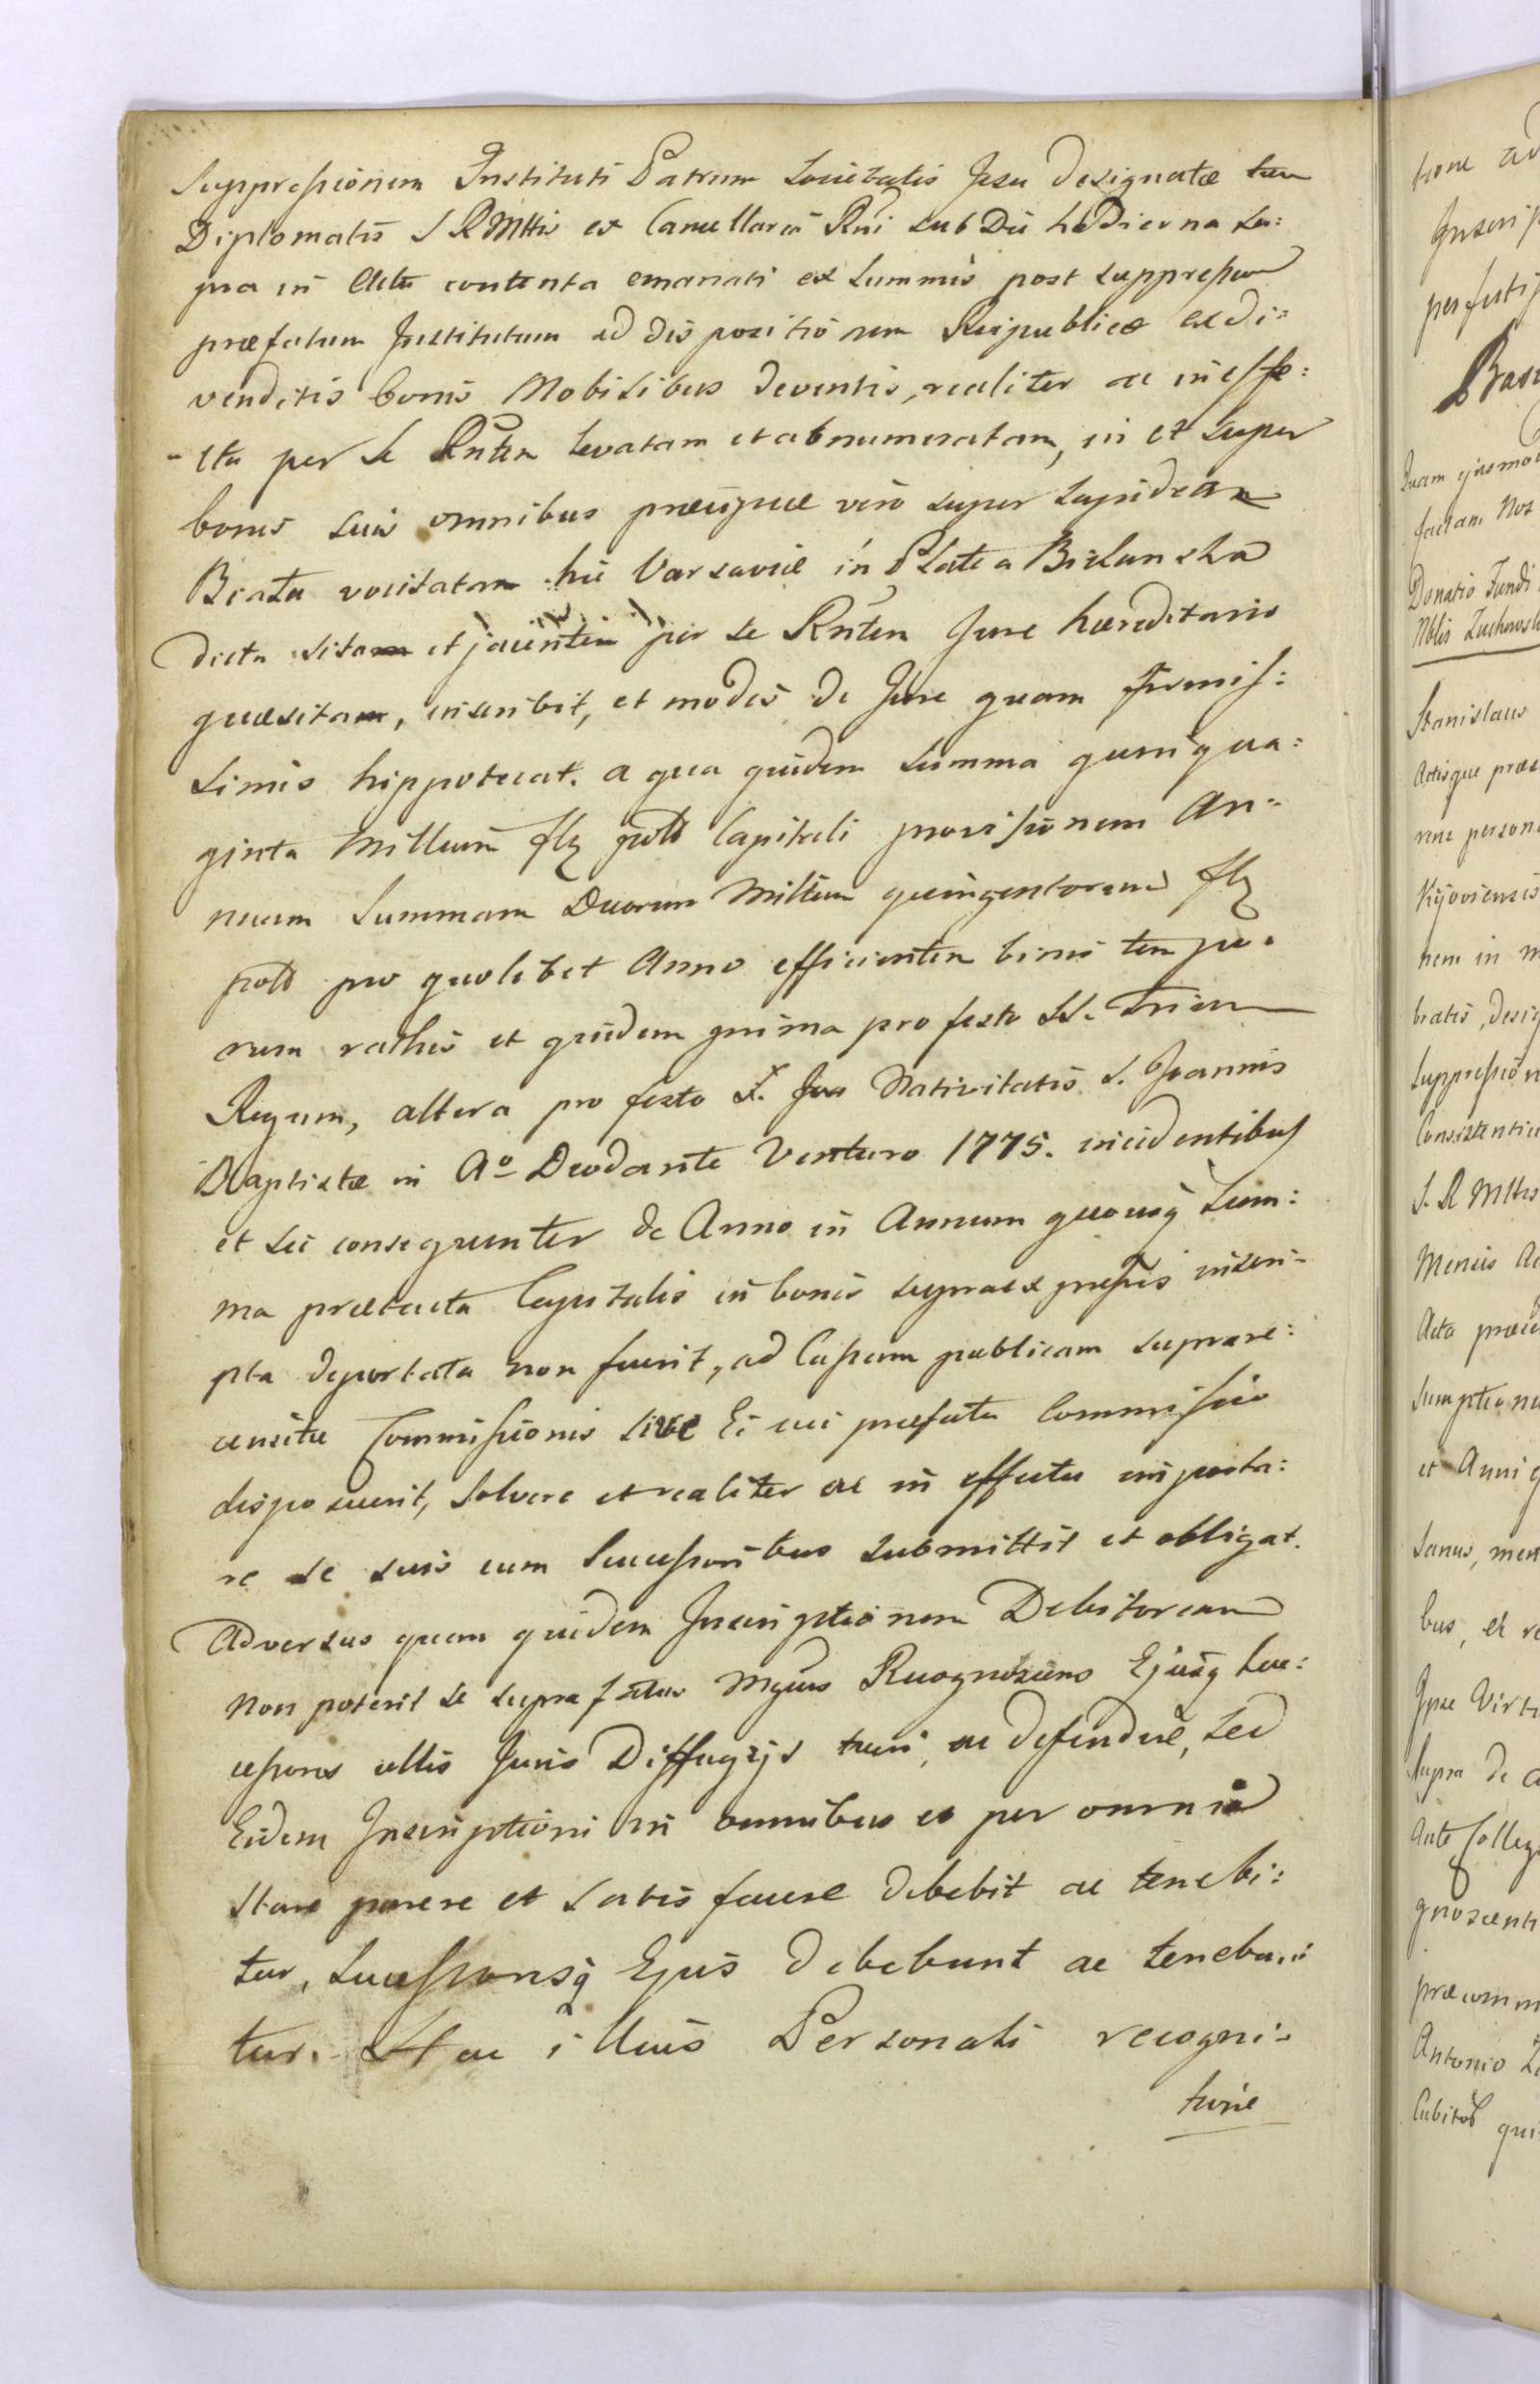 Suppressionem Instituti Patrum Societatis Jesu designatæ tum
Diplomatis S R Mttis ex Cancellaria Rni sub Die hodierna su:
pra in Actis contenta emanati ex summis post suppressum
præfatum Institutum ad dispositionem Reipublicæ ex di:
venditis bonis Mobilibus deventis, realiter ac in effe:
-ctu per se Rnten levatam et abnumeratam, in et super
bonis suis omnibus præcipue vero super lapidean
Beata vocitatam hic Varsaviæ in Platea Bielanska
dicta sitam et jacentem per se Rnten Jure hæreditario
quæsitam, inscribit, et modis de Jure quam firmis:
simis hippotecat. a qua quidem Summa quinqua:
ginta Millium flz poll Capitali provisionem An:
nuam Summam Duorum Millium quingentorum flz
poll pro quolibet Anno efficientem binis tempo:
rum rathis et quidem prima pro festo SS. Trium
Regum, altera pro festo S. Joa Nativitatis S. Joannis
Baptistæ in Aº Deodante Venturo 1775. incidentibus
et sic consequenter de Anno in Annum quousq Sum:
ma prætacta Capitalis in bonis supraexpressis inscri:
pta deportata non fuerit, ad Cassam publicam suprare:
censitæ Commissionis sive Ei cui præfata Commissio
disposuerit, solvere et realiter ac in effectu importa:
re se suis cum Successoribus submittit et obligat.
Adversus quam quidem Inscriptionem Debitoream
non poterit se supra fatus Mgcus Recognoscens Ejusq suc:
cessores ullis Juris Diffugijs tueri, ac defendere, sed
Eidem Inscriptioni in omnibus et per omnia
stare parere et satisfacere debebit ac tenebi:
tur, Successoresq Ejus debebunt ac tenebun:
tur. Hac illius Personali recogni:
tione
tione ad
Inscrip
perfesti
Quam ejusmod
factam Nos
Donatio Fundi
Nblis Zuchowsk
Stanislaus
Actisque præs
Kijoviensis
nem in m
bratis, desig
Suppression
Consistentie
S. R Mttis
Mensis Au
Acta præs
Sumptione
et Anni q
Sanus, men
bus, et re
Ipse Virt
Supra de a
Ante Colleg
gnoscenti
præcomm
Antonio Z
Cubitos qui